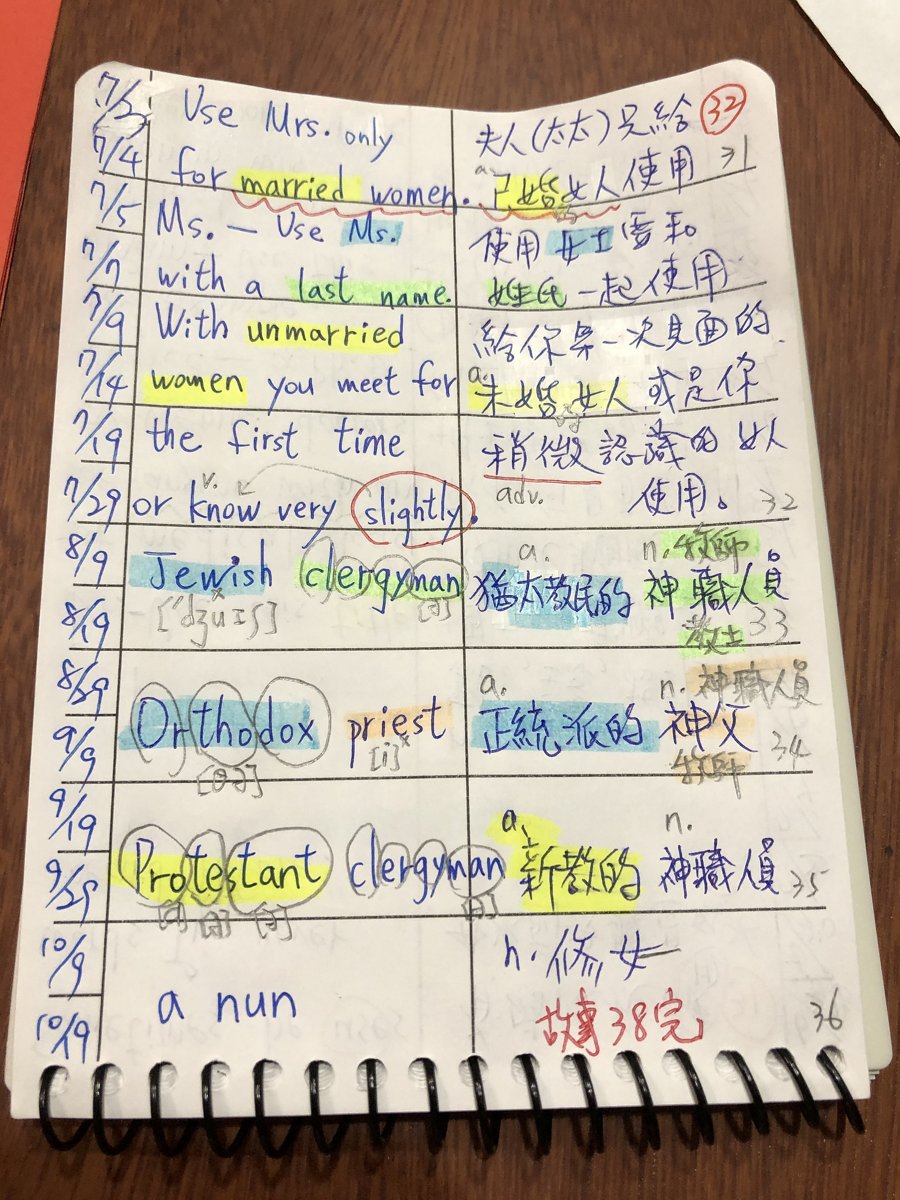 7/3 Use Mrs. only 夫人(太太)只給 32
7/4 for married women. a. 已婚女人使用 31
7/5 Ms. — Use Ms. 使用女士需和
7/7 with a last name. 姓氏一起使用
7/9 With unmarried 給你第一次見面的
7/14 women you meet for a. 未婚女人或是你
7/19 the first time 稍微認識的女人
v. adv.
7/29 or know very slightly. 使用。 32
8/9 Jewish clergyman a. 猶太教民的 n. 牧師 神職人員。
8/19 ['dʒuɪʃ] [ə] 教士 33
8/29 a. n. 神職人員
Orthodox priest 正統派的 神父 34
9/9 [ə] [i] 牧師
9/19 a. n.
Protestant clergyman 新教的 神職人員 35
9/29 [ə] [ə] [ə]
10/9 n. 修女
a nun
10/19 故事38完 36